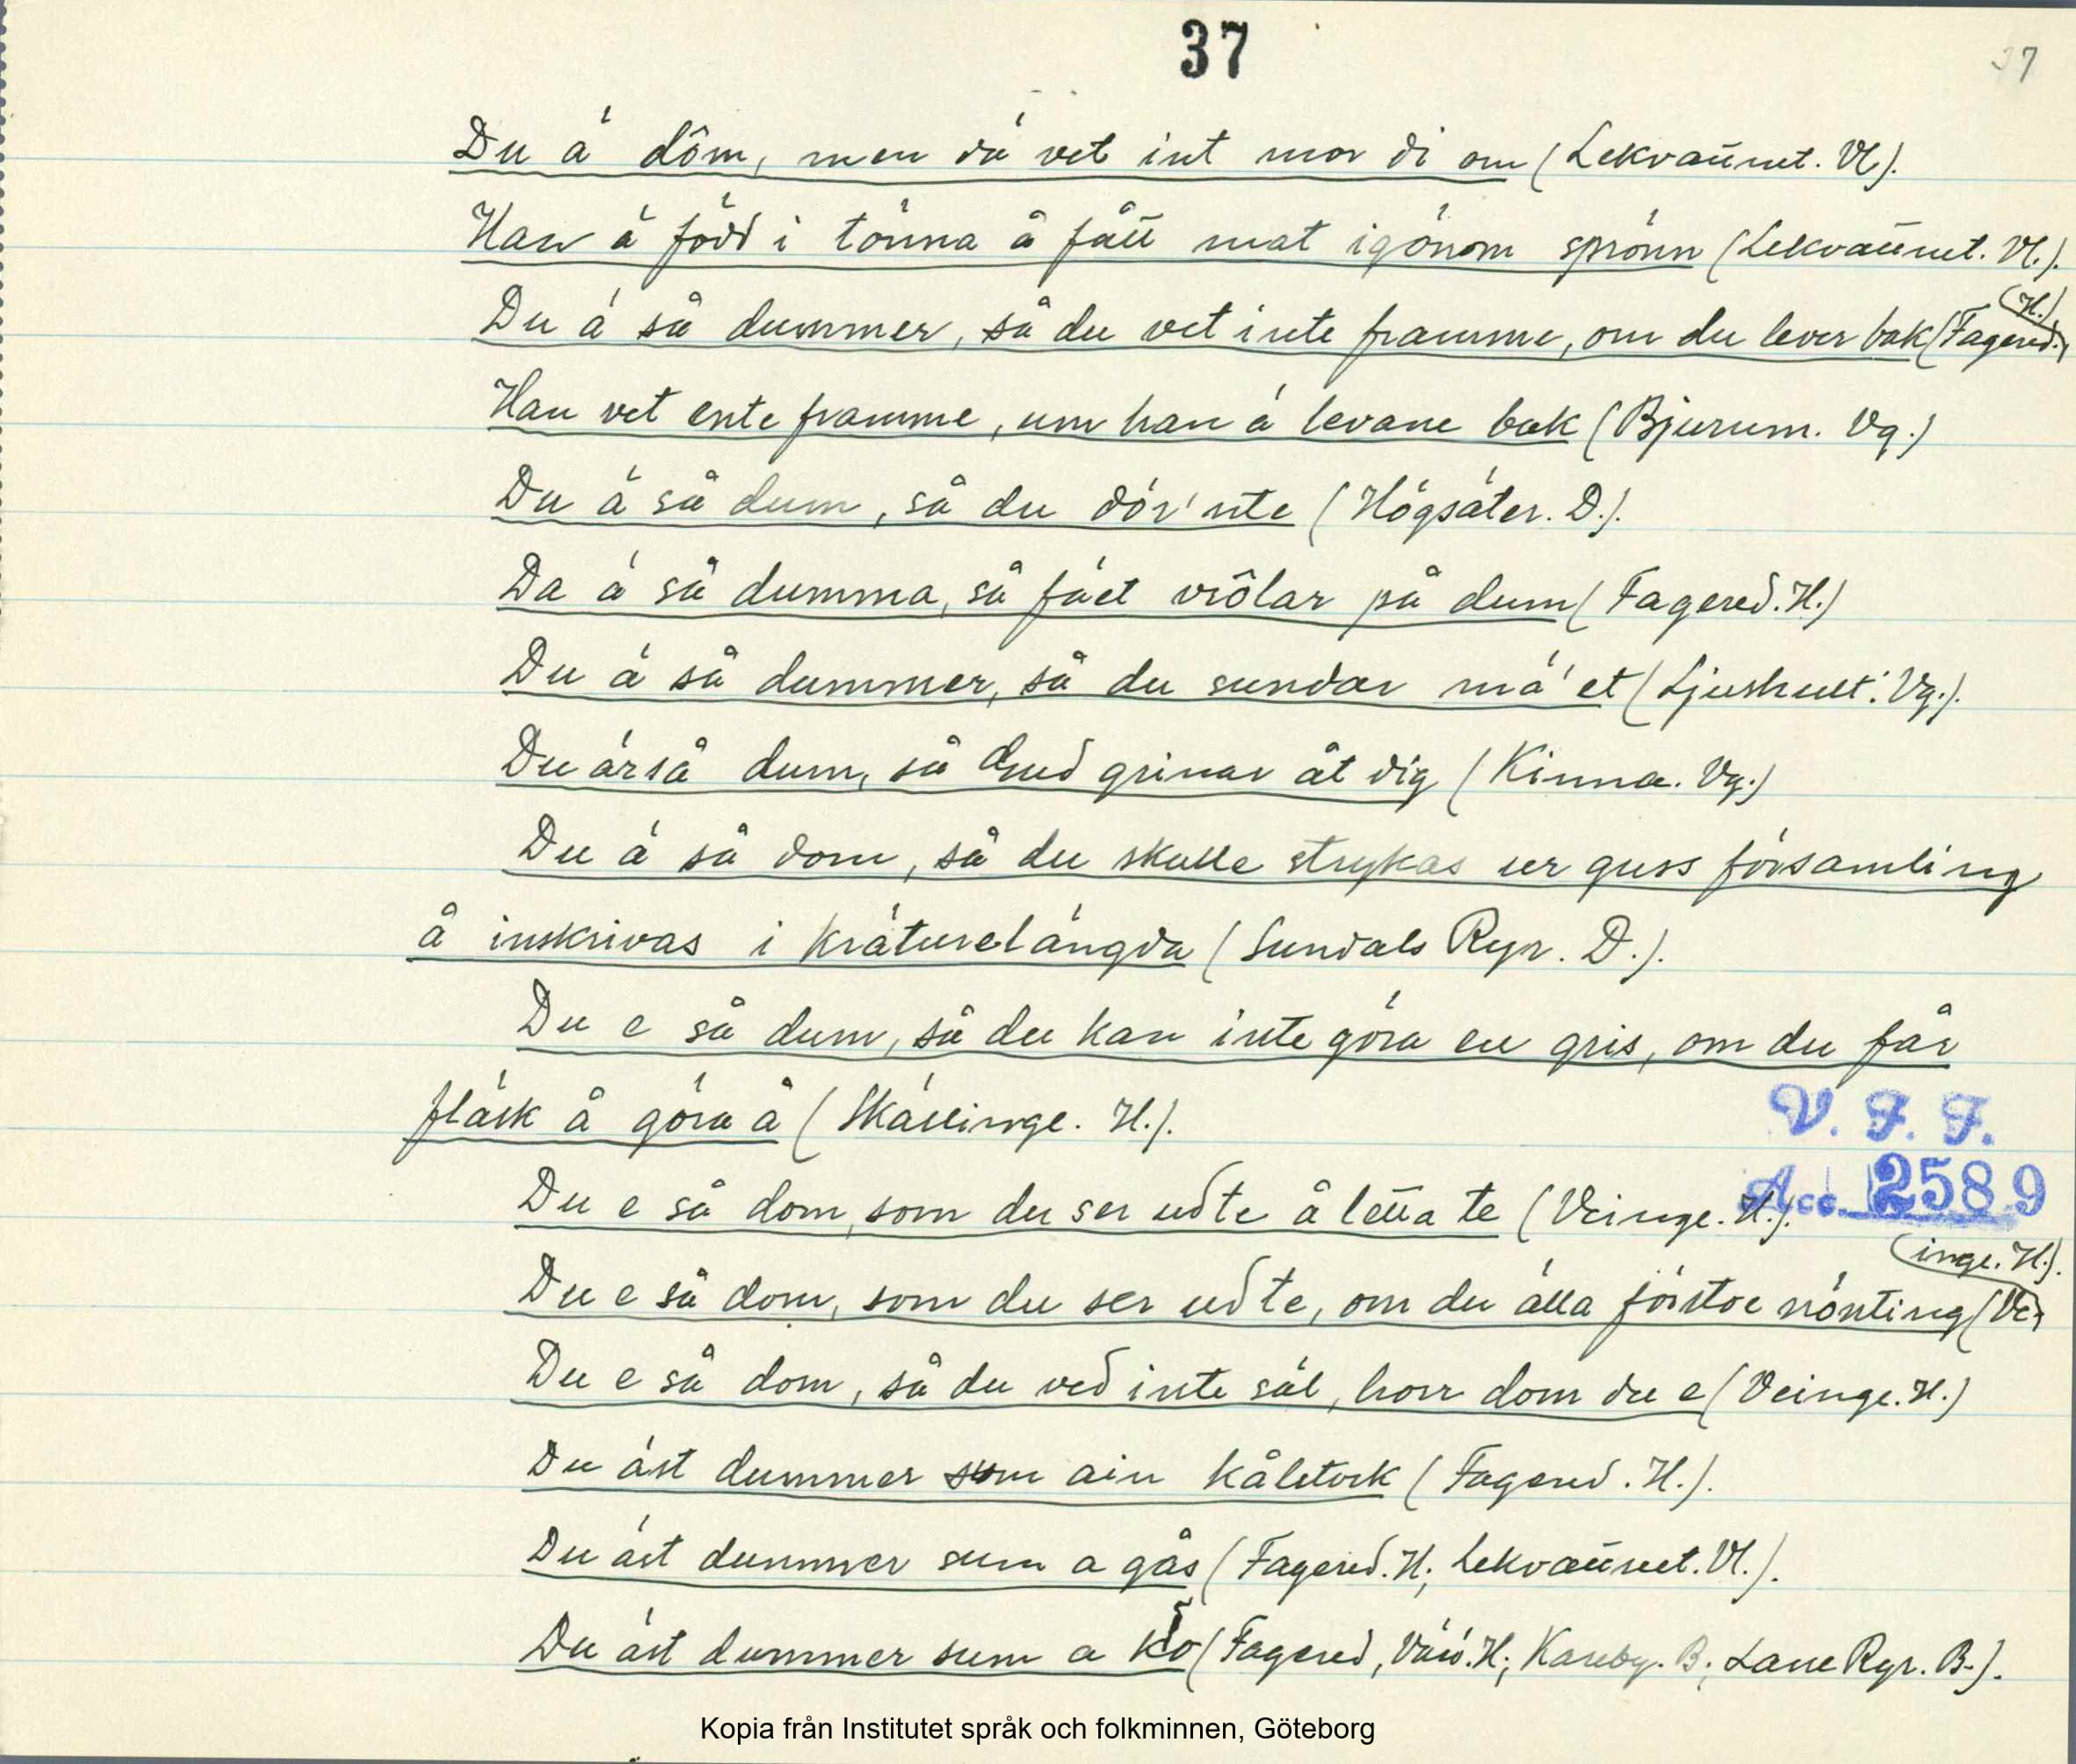 37
37
Du ä dôm, men dä vet int mor di om (Lekvattnet. Vl).
Han ä född i tönna å fått mat igönom sprönn (Lekvattnet. Vl.).
(H.)
Du ä så dummer, så du vet inte framme, om du lever bak (Fagered.
Han vet ente framme, um han ä levane bak (Bjurum. Vg.)
Du ä så dum, så du dör'nte (Högsäter. D.).
Da ä så dumma, så fäet vrôlar på dum (Fagered. H.)
Du ä så dummer, så du sundar mä'et (Ljushult. Vg.).
Du är så dum, så Gud grinar åt dig (Kinna. Vg.)
Du ä så dom, så du skulle strykas ur guss församling
å inskrivas i kräturelängda (Sundals Ryr. D.).
Du e så dum, så du kan inte göra en gris, om du får
fläsk å göra å (Skällinge. H.).
V. F. F.
Acc. 2589
Du e så dom, som du ser udte å letta te (Veinge. H.).
inge. H.).
Du e så dom, som du ser udte, om du älla förstoe nönting (Ve-
Du e så dom, så du ved inte säl, horr dom du e (Veinge. H.)
Du äst dummer sum ain kålstock (Fagered. H.).
Du äst dummer sum a gås (Fagered. H; Lekvattnet. Vl.).
Du äst dummer sum a ko (Fagered, Värö. H; Kareby. B; Lane Ryr. B.).
Kopia från Institutet språk och folkminnen, Göteborg